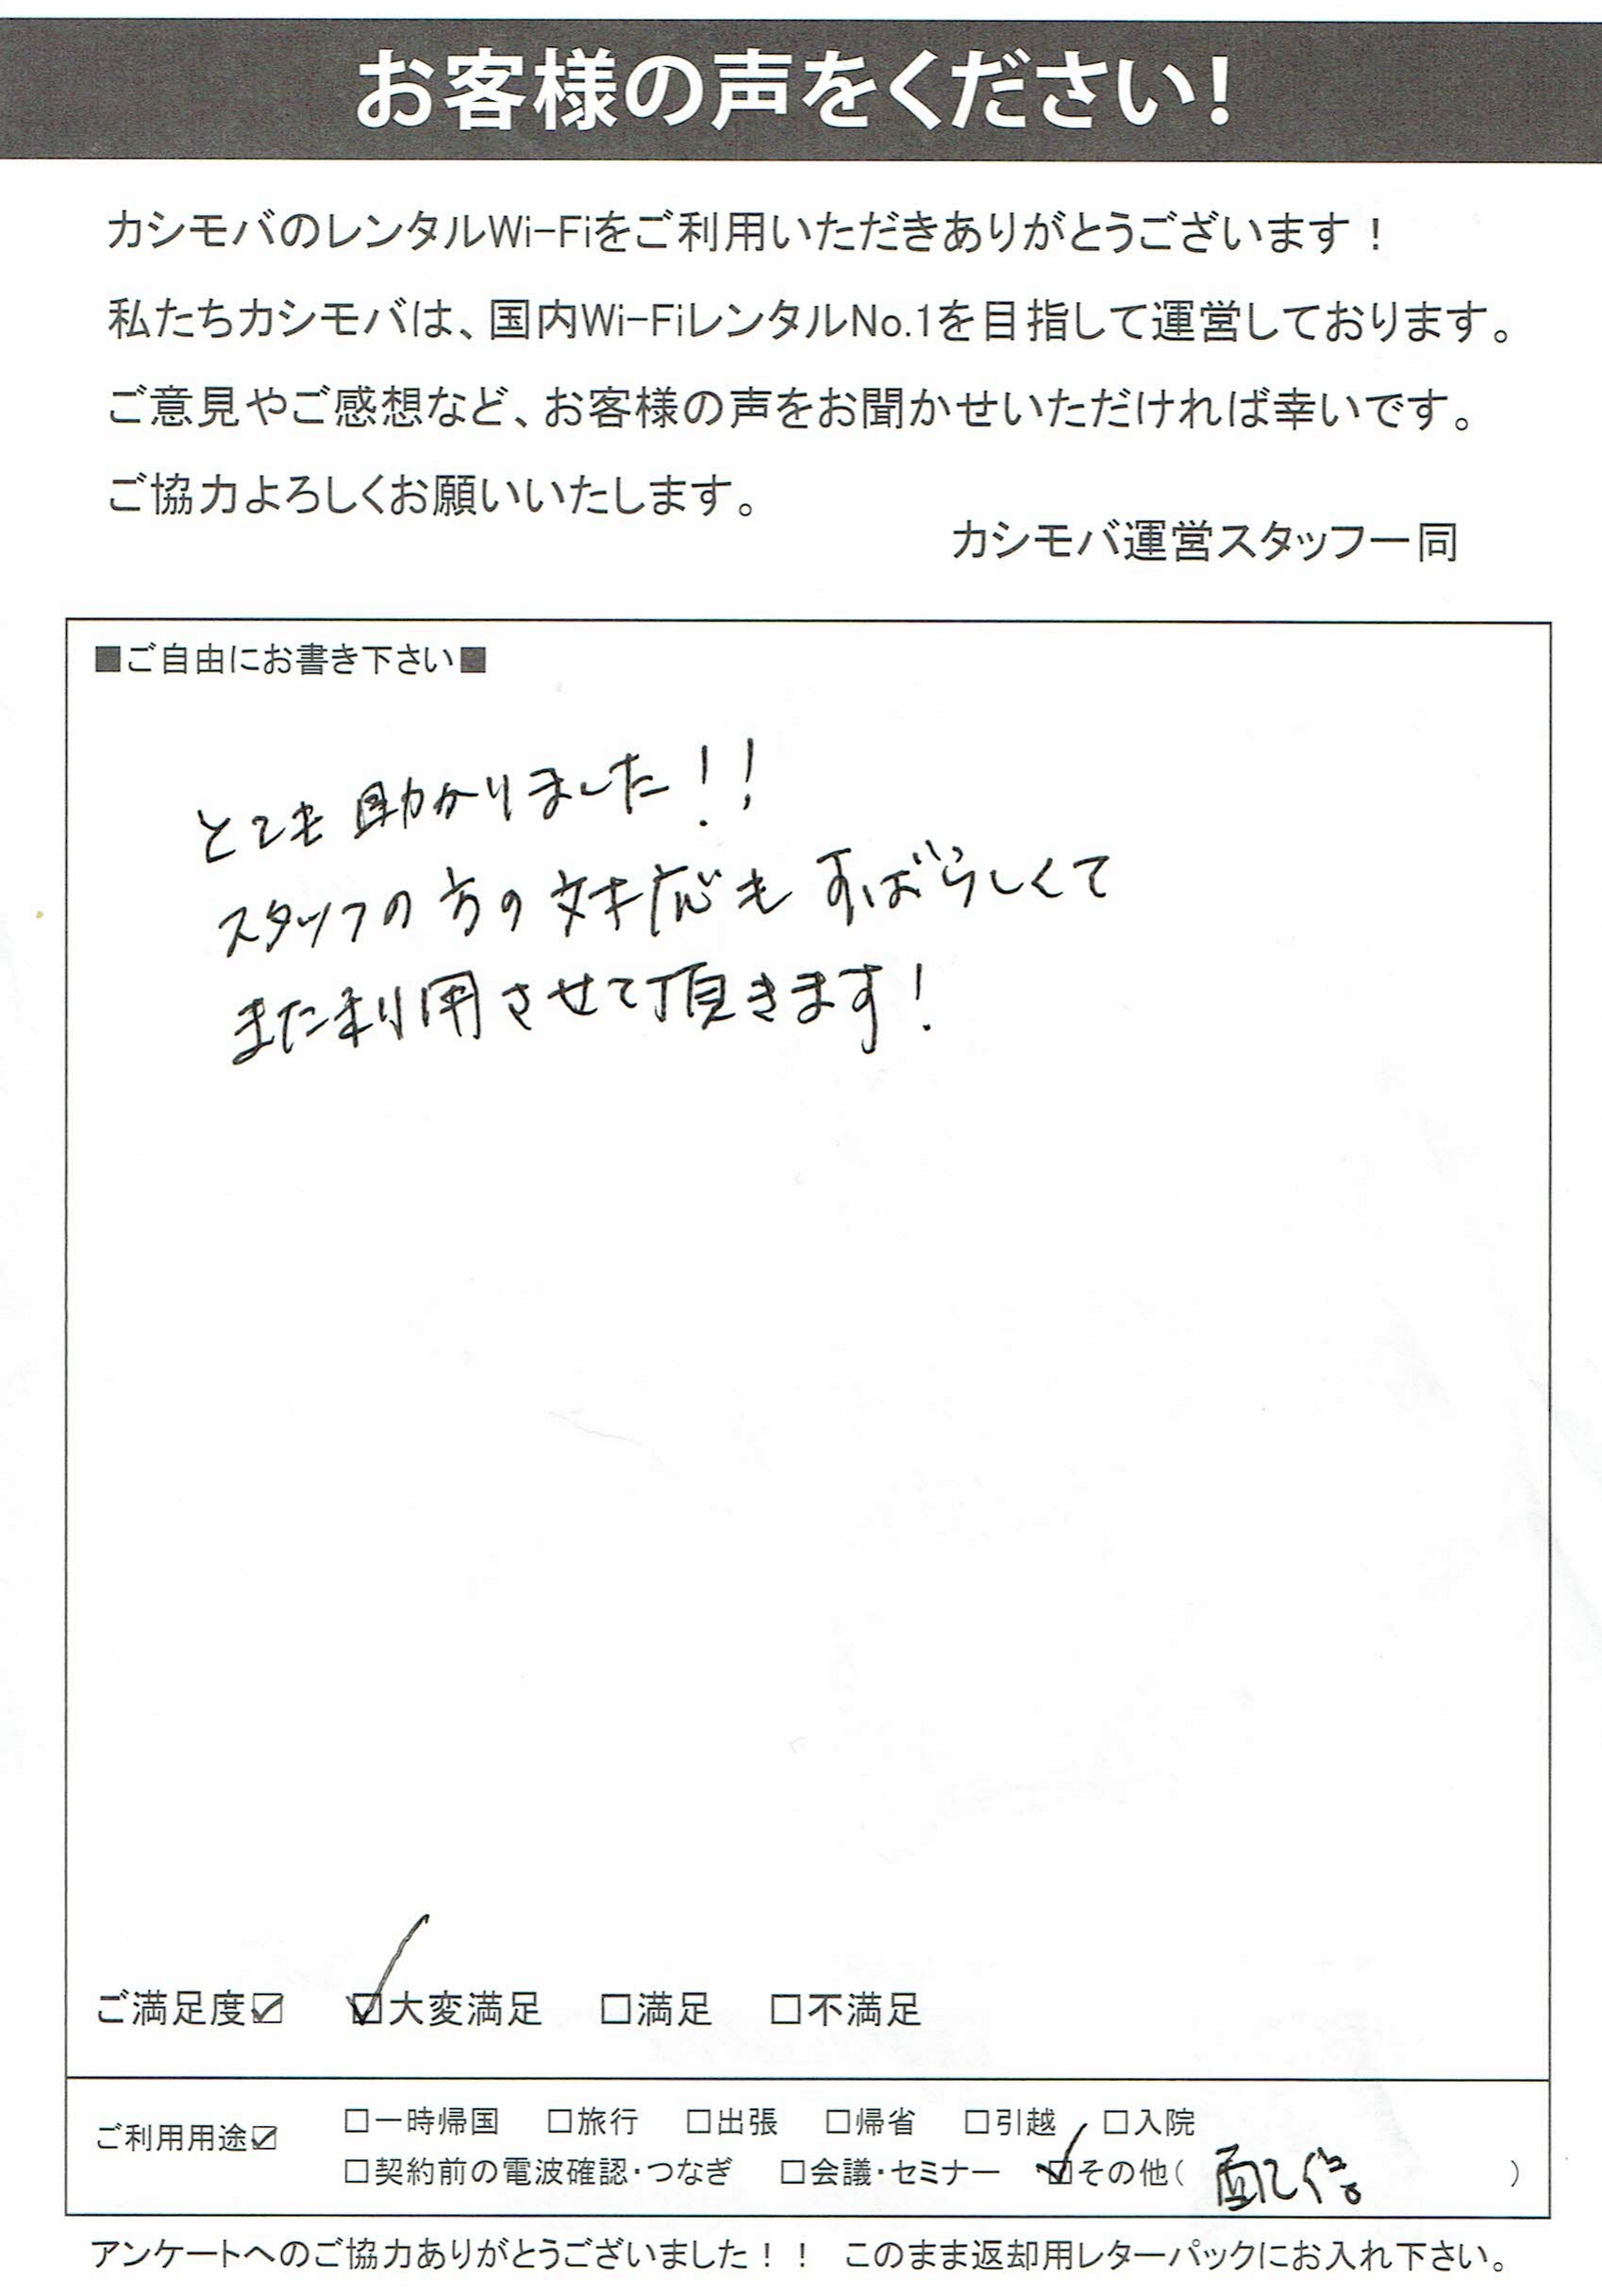 お客様の声をください!
カシモバのレンタルWi-Fiをご利用いただきありがとうございます！
私たちカシモバは、国内Wi-FiレンタルNo.1を目指して運営しております。
ご意見やご感想など、お客様の声をお聞かせいただければ幸いです。
ご協力よろしくお願いいたします。
カシモバ運営スタッフ一同
■ご自由にお書き下さい■
とても助かりました！！
スタッフの方の対応もすばらしくて
また利用させて頂きます！
ご満足度☑ ☑大変満足 □満足 □不満足
ご利用用途☑ □一時帰国 □旅行 □出張 □帰省 □引越 □入院
□契約前の電波確認・つなぎ □会議・セミナー ☑その他（配信）
アンケートへのご協力ありがとうございました！！ このまま返却用レターパックにお入れ下さい。